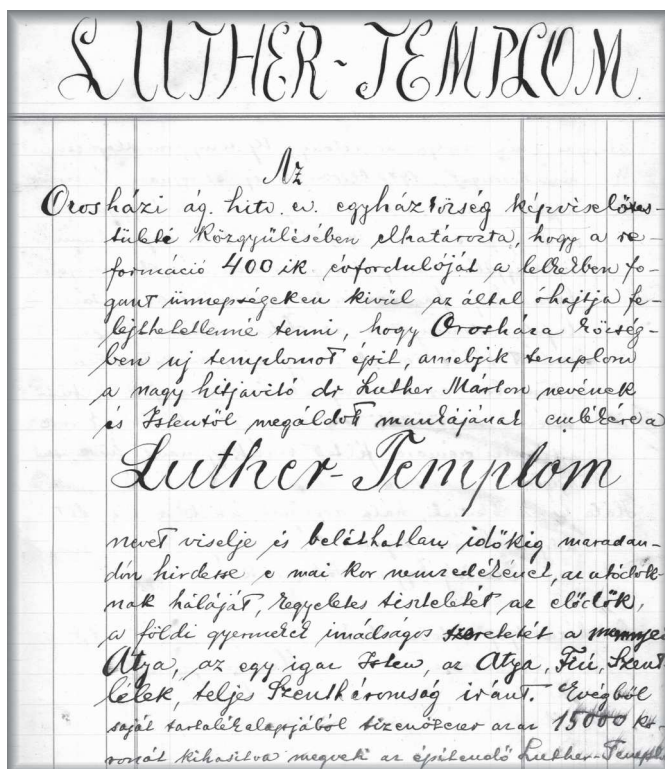 LUTHER-TEMPLOM.
Az
Orosházi ág. hitv. ev. egyházközség képviselőtes-
tülete közgyülésében elhatározta, hogy a re-
formáció 400 ik évfordulóját a lelkekben fo-
gant ünnepségeken kivül az által óhajtja fe-
lejthetetlenné tenni, hogy Orosháza község-
ben uj templomot épit, amelyik templom
a nagy hitjavitó dr Luther Márton nevének
és Istentől megáldott munkájának emlékére a
Luther-Templom
nevet viselje és beláthatlan időkig maradan-
dón hirdesse e mai kor nemzedékének, az utódok-
nak háláját, kegyeletes tiszteletét az elődök,
a földi gyermekek imádságos szeretetét a mennyei
Atya, az egy igaz Isten, az Atya, Fiú, Szent
lélek, teljes Szentháromság iránt. Evégből
saját tartalékalapjából tizenötezer azaz 15000 ko-
ronát kihasitva megveti az épitendő Luther-Templ